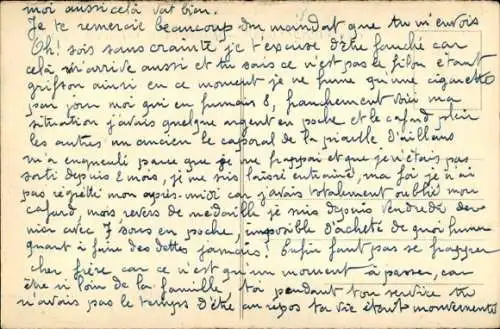 moi aussi celà vat bien.
Je te remerçie beaucoup du mandat que tu m'envois
Oh! sois sans crainte je t'excise d'être fauché car
celà m'arrive aussi et tu sais ce n'est pas le filon étant
griffon ainsi en ce moment je ne fume qu'une cigarette
par jour moi qui en fumais 8, franchement voici ma
situation j'avais quelque argent en poche et le cafard plein
les autres un ancien le caporal de la piaule D'ailleurs
m'a engueulé parce que je me frappai et que je n'étais pas
sorti depuis 2 mois, je me suis laissé entrainé, ma foi je n'ai
pas régretté mon après-midi car j'avais totalement oublié mon
cafard, mais revers de médaille je suis depuis vendredi der
nier avec 7 sous en poche, impossible d'acheté de quoi fumer
quant à faire des dettes jamais! Enfin faut pas se frapper
cher frère car ce n'est qu'un moment à passer, car
être si loin de la famille, toi pendant ton service tu
n'avais pas le temps d'être au repos ta vie étant mouvementé